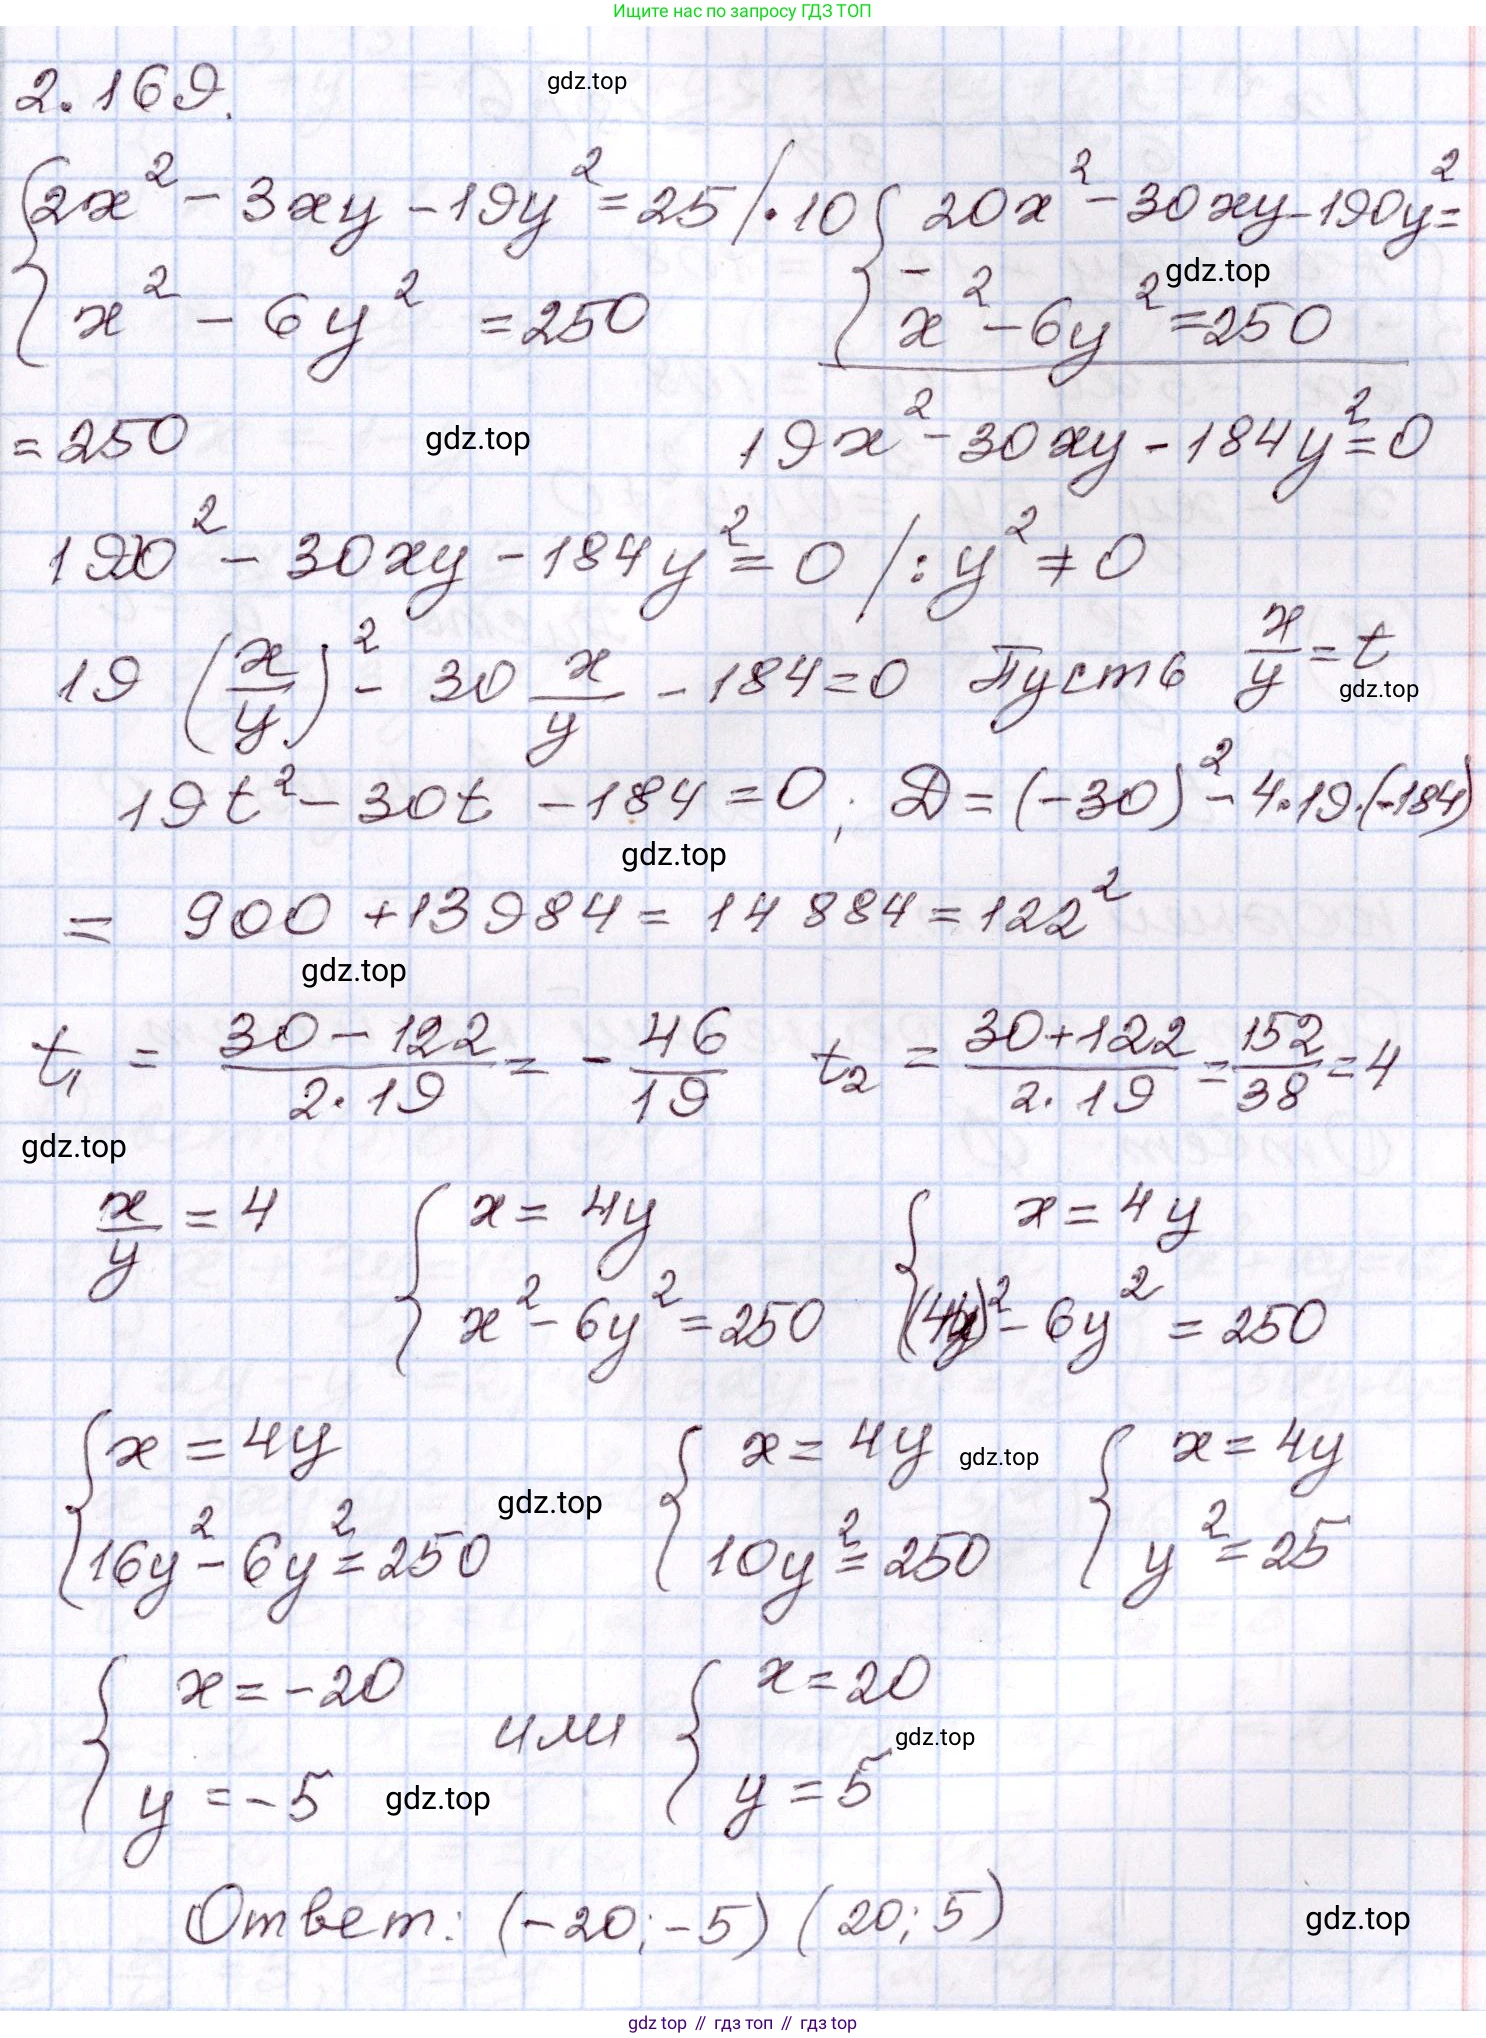 Ищите нас по запросу ГДЗ ТОП
2.169. gdz.top
{ 2x² - 3xy - 19y² = 25 /·10 { 20x² - 30xy - 190y² =
x² - 6y² = 250 - x² - 6y² = 250 gdz.top
= 250 gdz.top 19x² - 30xy - 184y² = 0
190² - 30xy - 184y² = 0 /: y² ≠ 0
19 (x/y)² - 30 x/y - 184 = 0 Пусть x/y = t gdz.top
19t² - 30t - 184 = 0; D = (-30)² - 4·19·(-184)
gdz.top
= 900 + 13984 = 14884 = 122²
gdz.top
t₁ = (30 - 122)/(2·19) = - 46/19 t₂ = (30+122)/(2·19) = 152/38 = 4
gdz.top
x/y = 4 { x = 4y { x = 4y
x² - 6y² = 250 (4y)² - 6y² = 250
{ x = 4y { x = 4y gdz.top { x = 4y
gdz.top
16y² - 6y² = 250 10y² = 250 y² = 25
{ x = -20 или { x = 20
gdz.top
y = -5 gdz.top y = 5
Ответ: (-20; -5) (20; 5) gdz.top
gdz top // гдз топ // гдз top